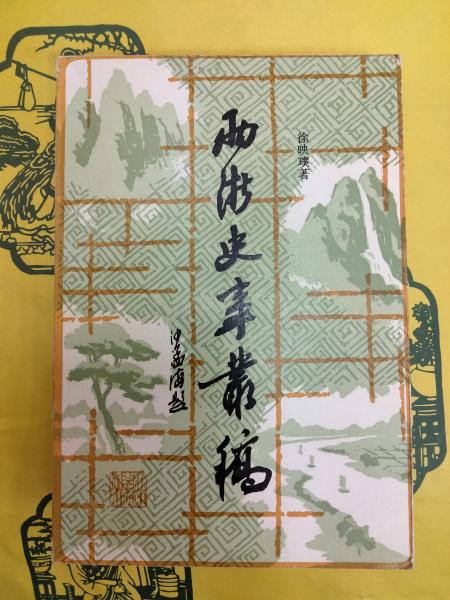 徐映璞著
两浙史事丛稿
沙孟海题